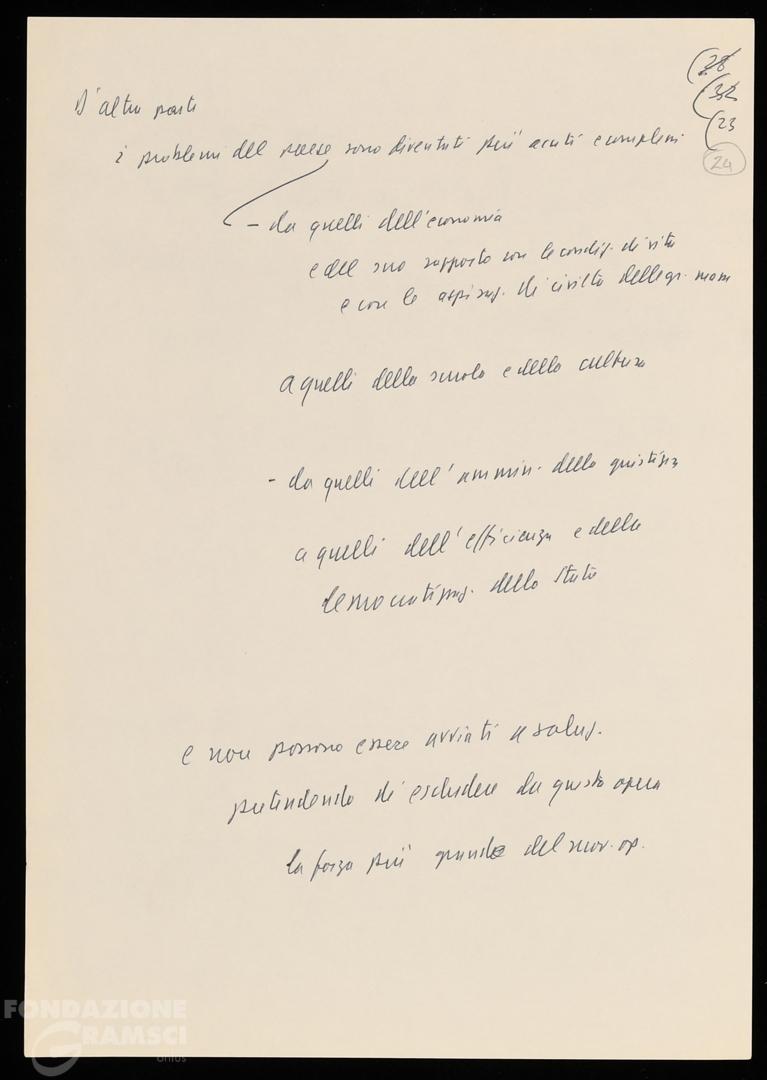 (28
(32
(23
24
D'altra parte
i problemi del paese sono diventati più acuti e complessi
– da quelli dell'economia
e del suo rapporto con le condiz. di vita
e con le aspiraz. di civiltà delle gr. masse
a quelli della scuola e della cultura
- da quelli dell'ammin. della giustizia
a quelli dell'efficienza e della
democratizzaz. dello Stato
e non possono essere avviati a soluz.
pretendendo di escludere da questa opera
la forza più grande del mov. op.
FONDAZIONE
GRAMSCI
onlus